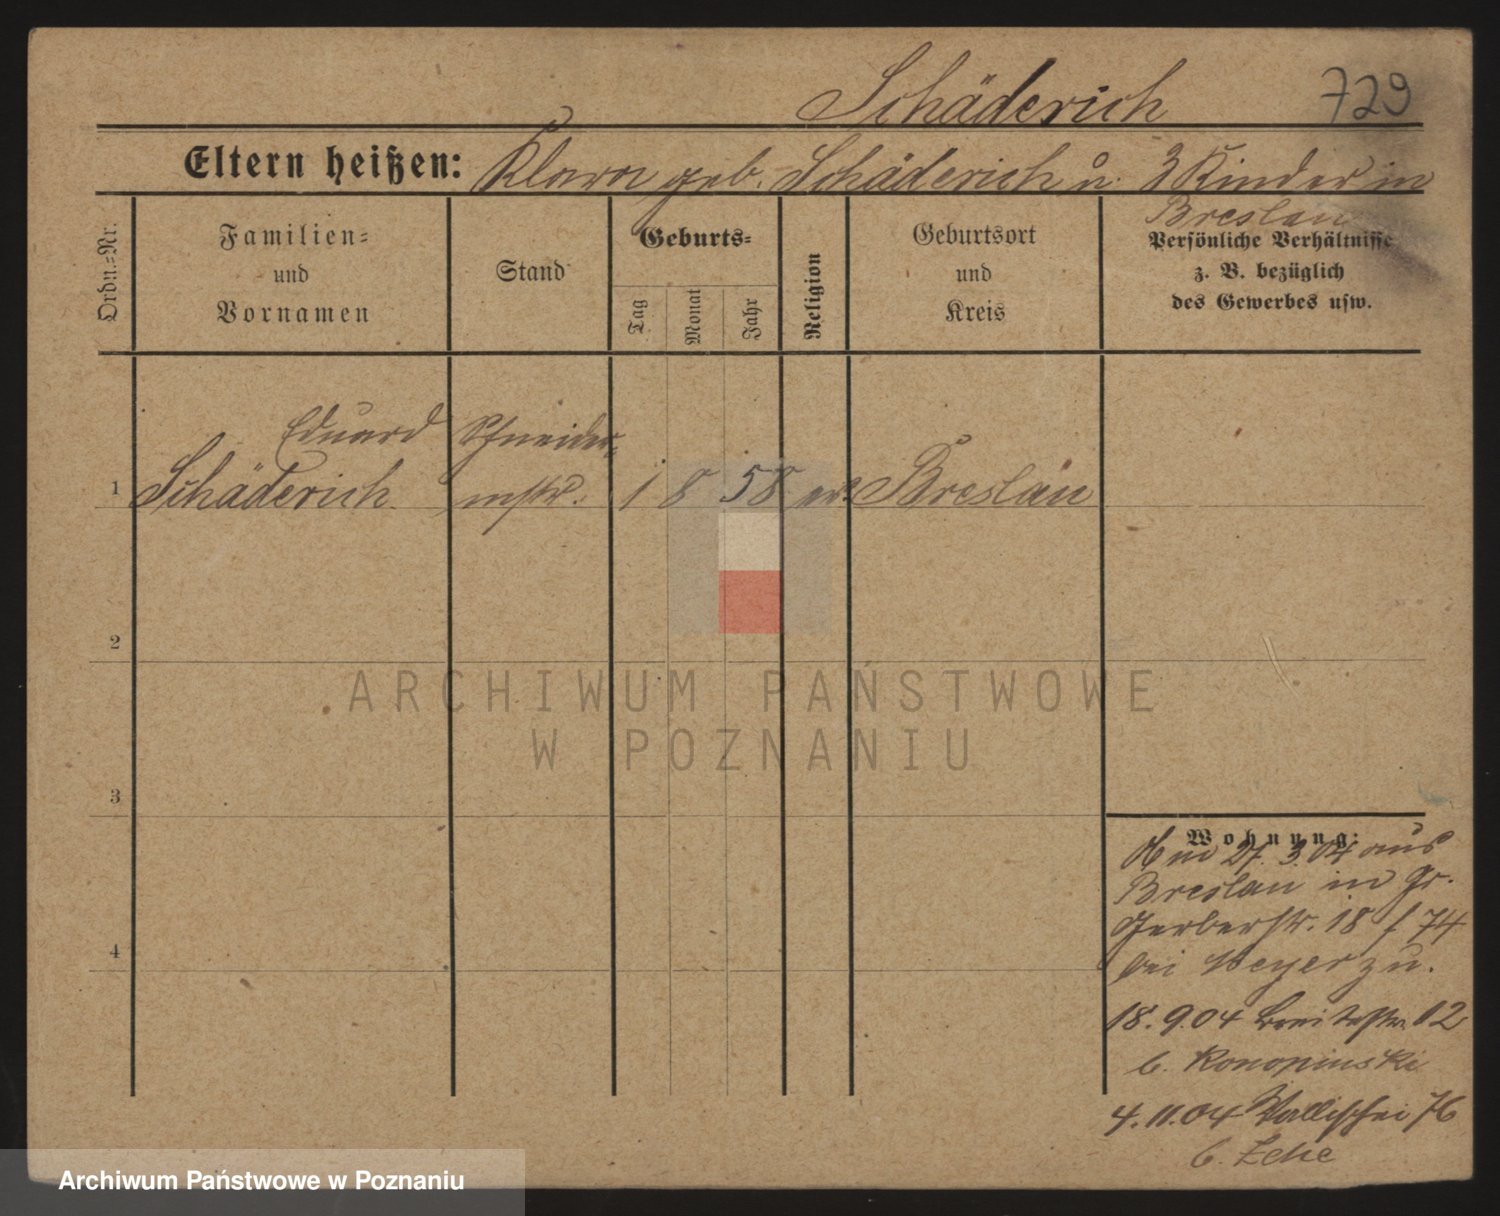 Schäderich 729
Eltern heißen: Klara geb. Schäderich u. 3 Kinder in
Breslau
Ordn.=Nr.
Familien=
und
Vornamen
Stand
Geburts=
Tag
Monat
Jahr
Religion
Geburtsort
und
Kreis
Persönliche Verhältnisse
z. B. bezüglich
des Gewerbes usw.
Eduard Schneider-
1 Schäderich mstr. 1 8 58 ev. Breslau
2
ARCHIWUM PAŃSTWOWE
W POZNANIU
3
Wohnung:
Am 27. 3. 04 aus
Breslau in Gr.
Gerberstr. 18 f 74
bei Meyer zu.
18. 9. 04 Breitestr. 12
b. Konopinski
4
4. 11. 04 Wallischei 76
b.
Archiwum Państwowe w Poznaniu